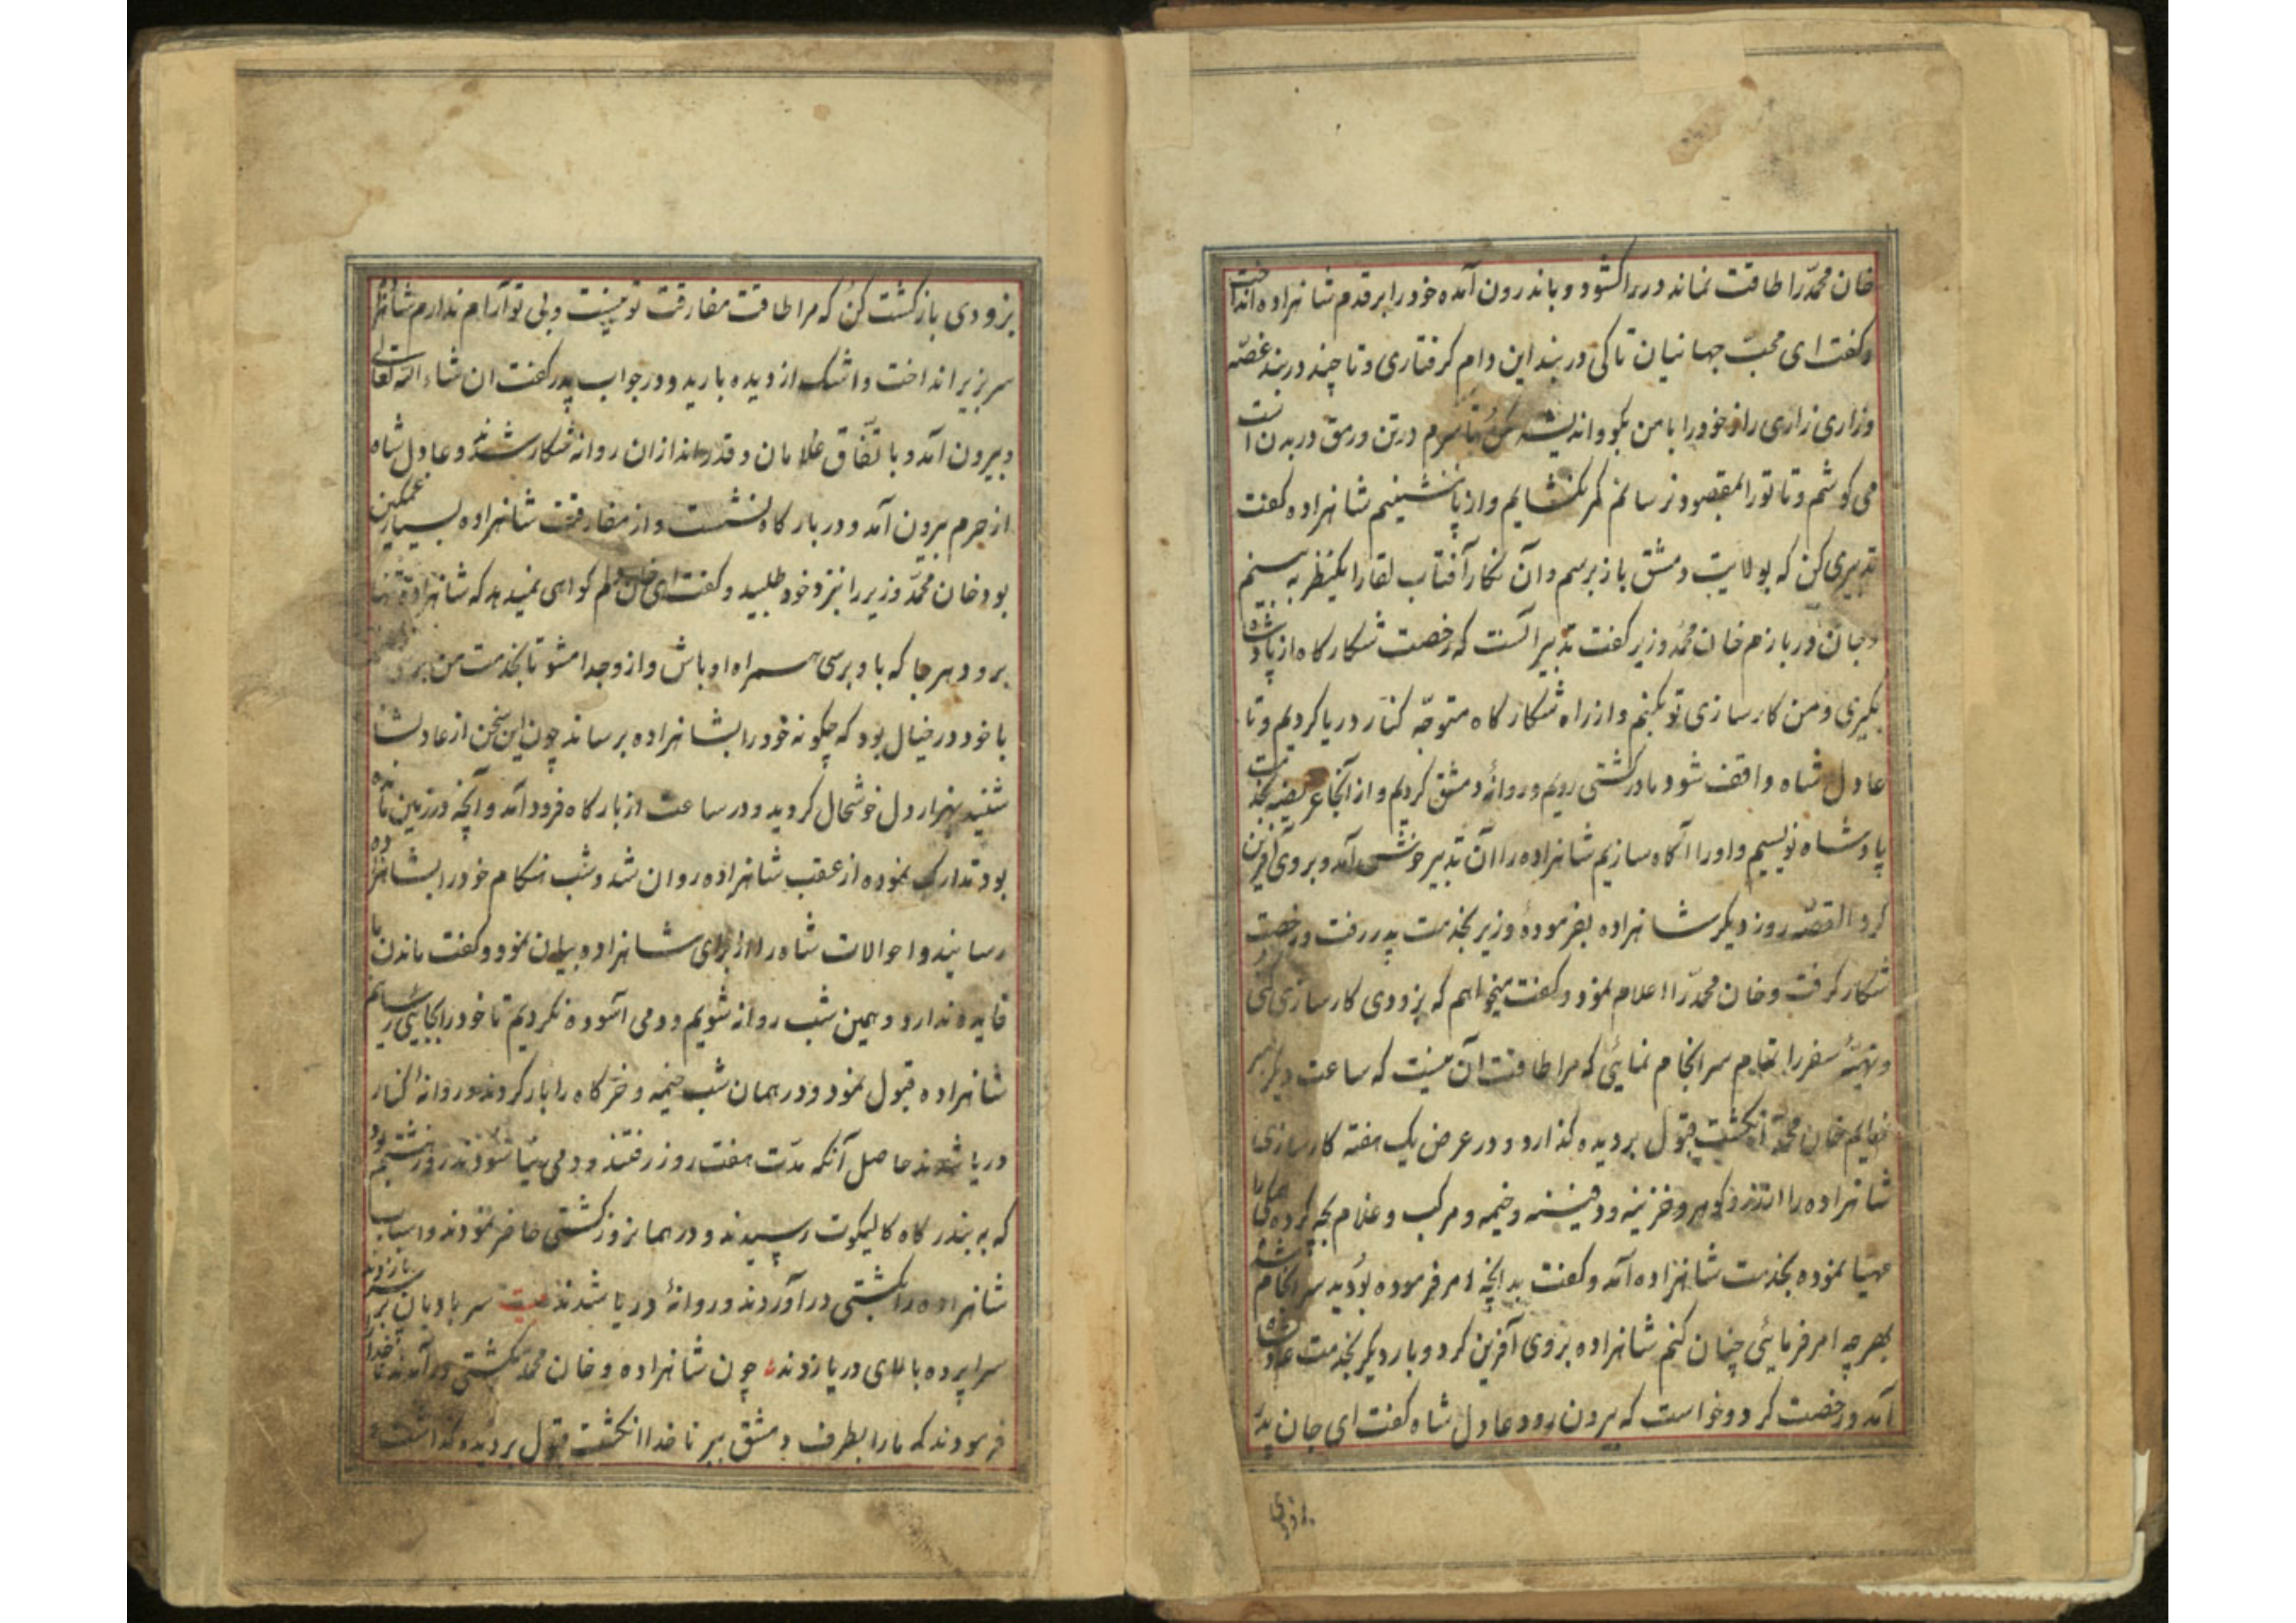 خان محمّد را طاقت نماند در را کشود و باندرون آمده خود را بر قدم شاهزاده انداخت
و کفت ای محبّ جهانیان تا کی در بند این دام کرفتاری و تا چند در بند غصّه
وزاری زاری راز خود را با من بکو و اندیشه مکن تا سرم در تن و رمق در بدن است
می کوشم و تا تو را بمقصود نرسانم کمر نکشایم و از پا ننشینم شاهزاده کفت
تدبیری کن که بولایت دمشق باز برسم و آن نکار آفتاب لقا را یکنظر به بینم
و جان در بازم خان محمّد وزیر کفت تدبیر آنست که رخصت شکارکاه از پادشاه
بکیری و من کارسازی تو بکنم و از راه شکارکاه متوجّه کنار دریا کردیم و تا
عادل شاه واقف شود ما در کشتی رویم و روانهٔ دمشق کردیم و از آنجا عریضه بخدمت
پادشاه نویسیم و او را آکاه سازیم شاهزاده را آن تدبیر خوش آمد و بروی آفرین
کرد القصّه روز دیکر شاهزاده بفرمودهٔ وزیر بخدمت پدر رفت و رخصت
شکار کرفت و خان محمّد را اعلام نمود و کفت میخواهم که بزودی کارسازی کنی
و تهیّهٔ سفر را تمام سرانجام نمائی که مرا طاقت آن نیست که ساعت دیکر صبر
نمایم خان محمّد انکشت قبول بر دیده کذارد و در عرض یک هفته کارسازی
شاهزاده را از زر و کوهر و خزینه و دفینه و خیمه و مرکب و غلام بچه کرده
مهیا نموده بخدمت شاهزاده آمد و کفت بدانچه امر فرموده بودید سرانجام شد
بهر چه امر فرمائی چنان کنم شاهزاده بروی آفرین کرد و بار دیکر بخدمت عادلشاه
آمد و رخصت کرد و خواست که بیرون رود عادل شاه کفت ای جان پدر
بزودی
بزودی بازکشت کن که مرا طاقت مفارقت تو نیست و بی تو آرام ندارم شاهزاده
سر بزیر انداخت و اشک از دیده بارید و در جواب پدر کفت ان شاء الله تعالی
و بیرون آمد و باتّفاق غلامان و قدراندازان روانه شکار شدند و عادل شاه
از حرم بیرون آمد و در بارکاه نشست و از مفارقت شاهزاده بسیار غمکین
بود خان محمّد وزیر را بنزد خود طلبید و کفت ای خان دلم کواهی نمیدهد که شاهزاده تنها
برود هر جا که باو برسی همراه او باش و از و جدا مشو تا بخدمت من
با خود در خیال بود که چکونه خود را بشاهزاده برساند چون این سخن از عادلشاه
شنید بهزار دل خوشحال کردید و در ساعت از بارکاه فرود آمد و آنچه در زمین
بود تدارک نموده از عقب شاهزاده روان شد و شب هنکام خود را بشاهزاده
رسانید و احوالات شاه را از برای شاهزاده بیان نمود و کفت ماندن ما
فایده ندارد و همین شب روانه شویم و دمی آسوده نکردیم تا خود را بجایی رسانیم
شاهزاده قبول نمود و در همان شب خیمه و خرکاه را بار کردند و روانهٔ کنار
دریا شدند حاصل آنکه مدّت هفت روز رفتند و دمی نیاسودند روز هشتم بود
که به بندرکاه کالیکوت رسیدند و در همانروز کشتی حاضر نمودند و اسباب
شاهزاده را بکشتی در آوردند و روانهٔ دریا شدند بیت سر بادبان بر سر باد زدند
سراپرده بالای دریا زدند چون شاهزاده و خان محمّد بکشتی در آمدند ناخدا را
فرمودند که ما را بطرف دمشق ببر ناخدا انکشت قبول بر دیده کذاشت